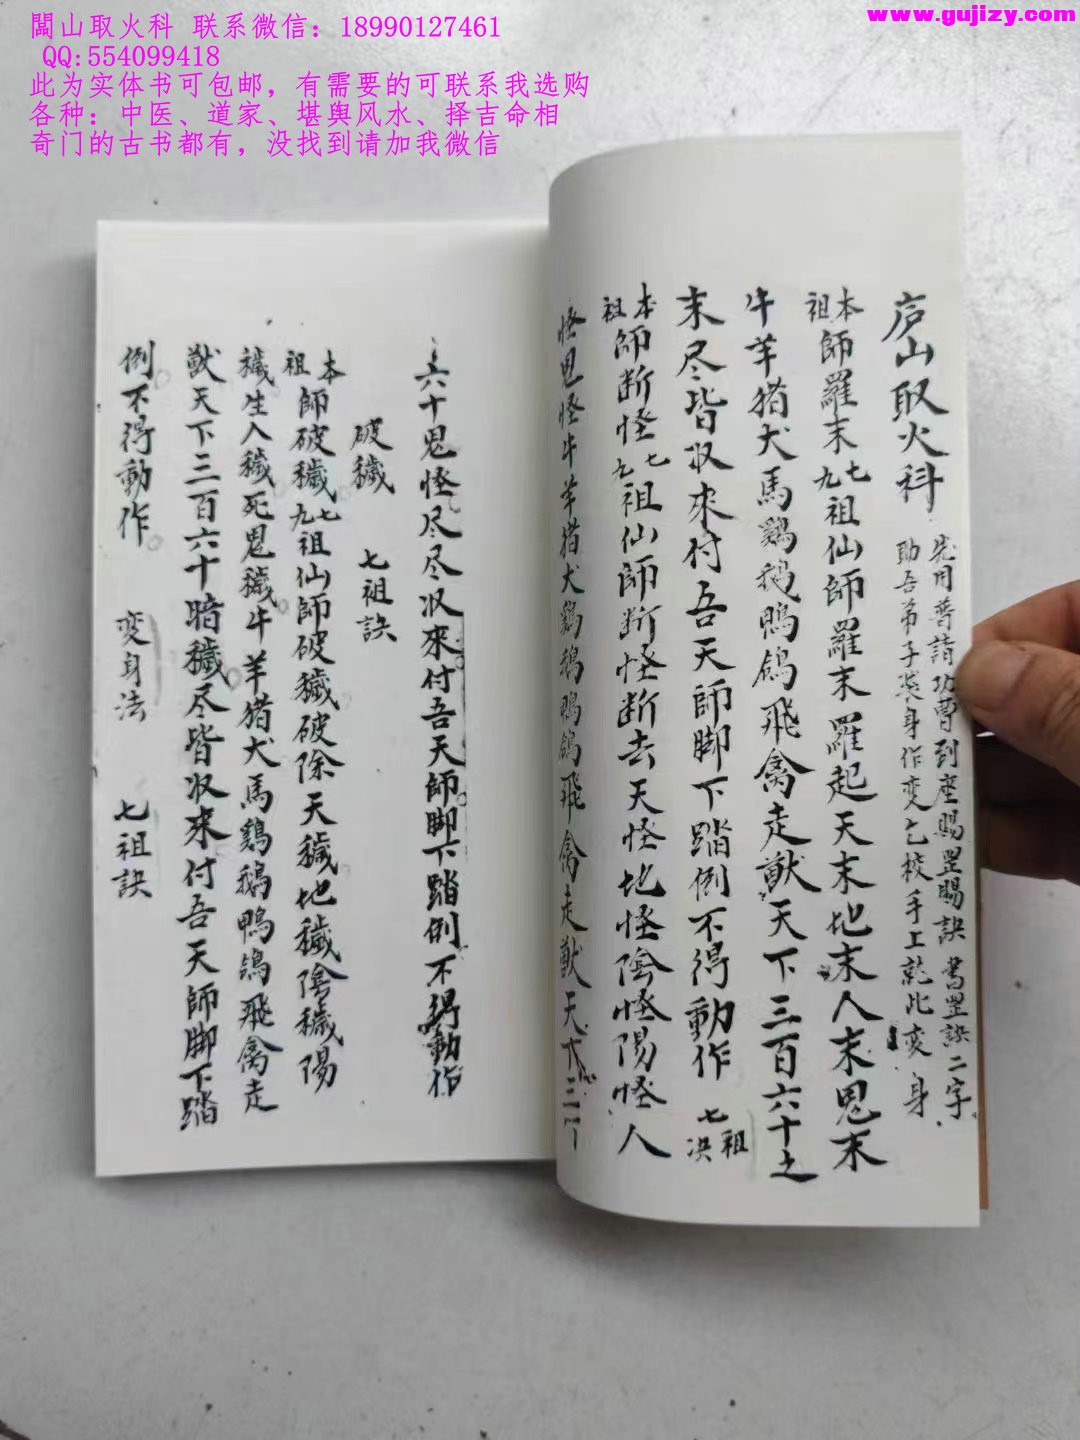 閭山取火科 联系微信：18990127461
QQ:554099418
此为实体书可包邮，有需要的可联系我选购
各种：中医、道家、堪舆风水、择吉命相
奇门的古书都有，没找到请加我微信
www.gujizy.com
庐山取火科
先用普請功曹到座賜罡賜訣 書罡訣二字
助吾弟子裝身作变 乞校手工就比变身
本祖師羅末七九祖仙師羅末羅起天末地末人末鬼末
牛羊猪犬馬鷄鵝鴨鴿飛禽走獸天下三百六十之
末尽皆收來付吾天師脚下踏倒不得動作 七祖决
本祖師断怪七九祖仙師断怪断去天怪地怪陰怪陽怪人
怪鬼怪牛羊猪犬鷄鵝鴨鴿飛禽走獸天下三百
六十鬼怪尽尽收來付吾天師脚下踏倒不得動作
破穢 七祖訣
本祖師破穢七九祖仙師破穢破除天穢地穢陰穢陽
穢生人穢死鬼穢牛羊猪犬馬鷄鵝鴨鴿飛禽走
獸天下三百六十暗穢尽皆收來付吾天師脚下踏
倒不得動作 变身法 七祖訣